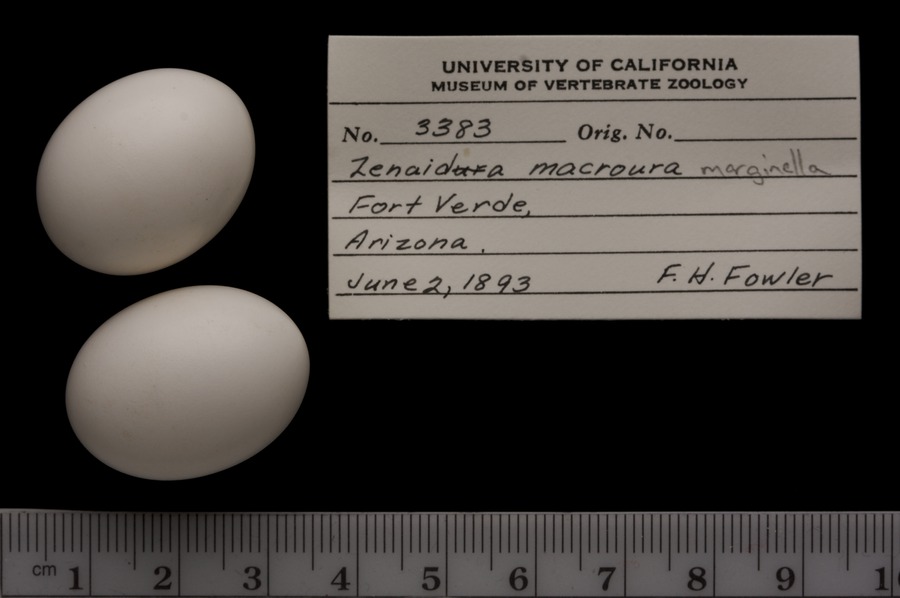 UNIVERSITY OF CALIFORNIA
MUSEUM OF VERTEBRATE ZOOLOGY
No. 3383 Orig. No.
Zenaidura macroura marginella
Fort Verde,
Arizona.
June 2, 1893 F. H. Fowler
cm 1 2 3 4 5 6 7 8 9 1